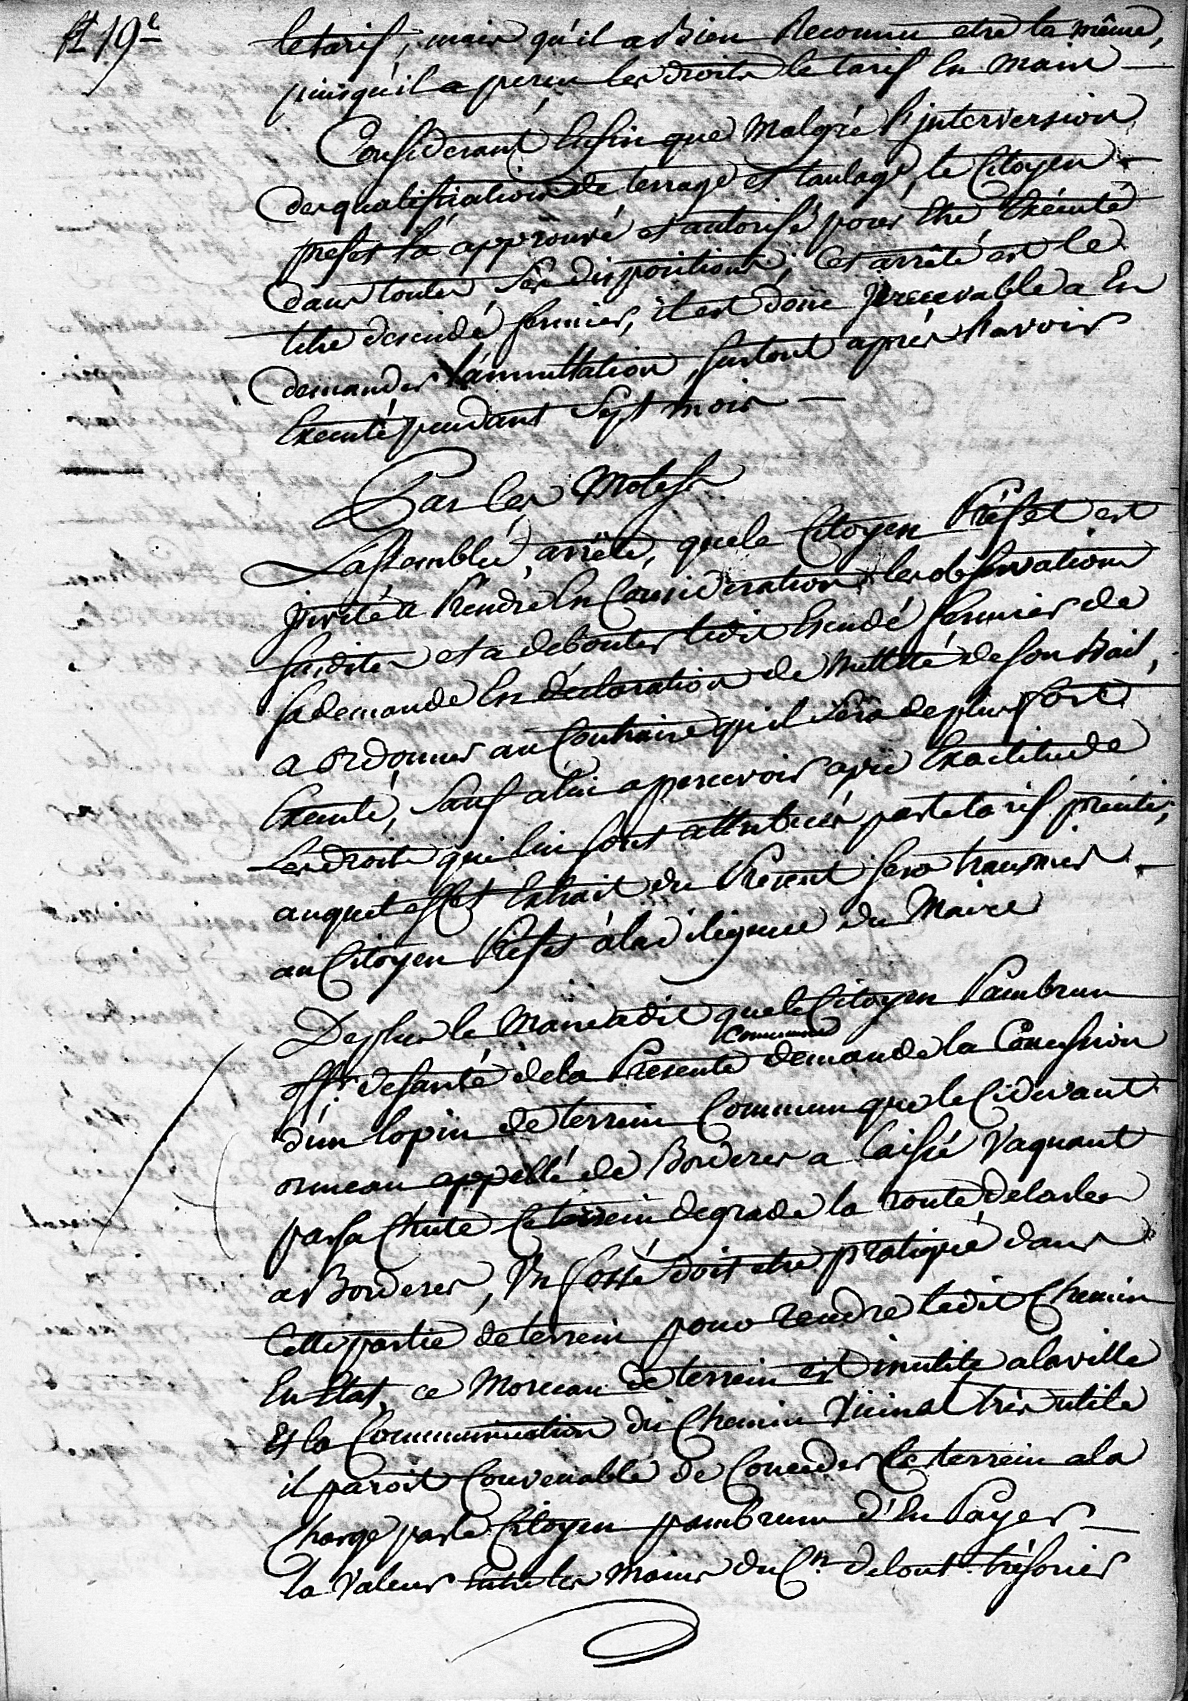 ft 19e
le tarif, mais qu'il a Bien Reconnu etre la même,
puisqu'il a perçu les droits le tarif En main
Considerant Enfin que Malgré L'jnterversion
des qualifications de terrage et taulage, le Citoyen
prefet l'a approuvé et autorisé pour Etre Exécuté
dans toutes Ses dispositions, Cet arrêté est le
titre descudé fermier, il est donc jrrecevable a En
demander l'annullation, surtout après L'avoir
Executé pendant Sept mois
Par Ces Motifs
L'assemblée, arrête, que le Citoyen Préfet est
jnvité a Prendre En Consideration les observations
susdites et a debouter ledit Escudé fermier de
sa demande En déclaration de Nullité de son Bail,
a ordonner au Contraire qu'il sera de plus fort
Executé, Sauf a lui a percevoir avec Exactitude
Les droits qui lui sont attribués par le tarif précité,
auquel effet Extrait du Présent sera transmis
au Citoyen Préfet à la diligence du Maire
De plus le Maire a dit que le Citoyen Pambrun
offr. de santé de la Presente Commune demande la Concession
d'un lopin de terrein Commun que le Cidevant
ormeau appellé de Borderes a laissé Vaquant
par sa Chute Ce terrein degrade la route de
a Borderes, Un fossé doit etre pratiqué dans
Cette partie de terrein pour rendre ledit Chemin
En Etat, ce Morceau de terrein est inutile a la ville
Et la Communication du Chemin Vicinal très utile
il paroit Convenable de Conceder Ce terrein a la
Charge par le Citoyen pambrun d'En Payer
la Valeur Entre les Mains du Cn. delout trésorier